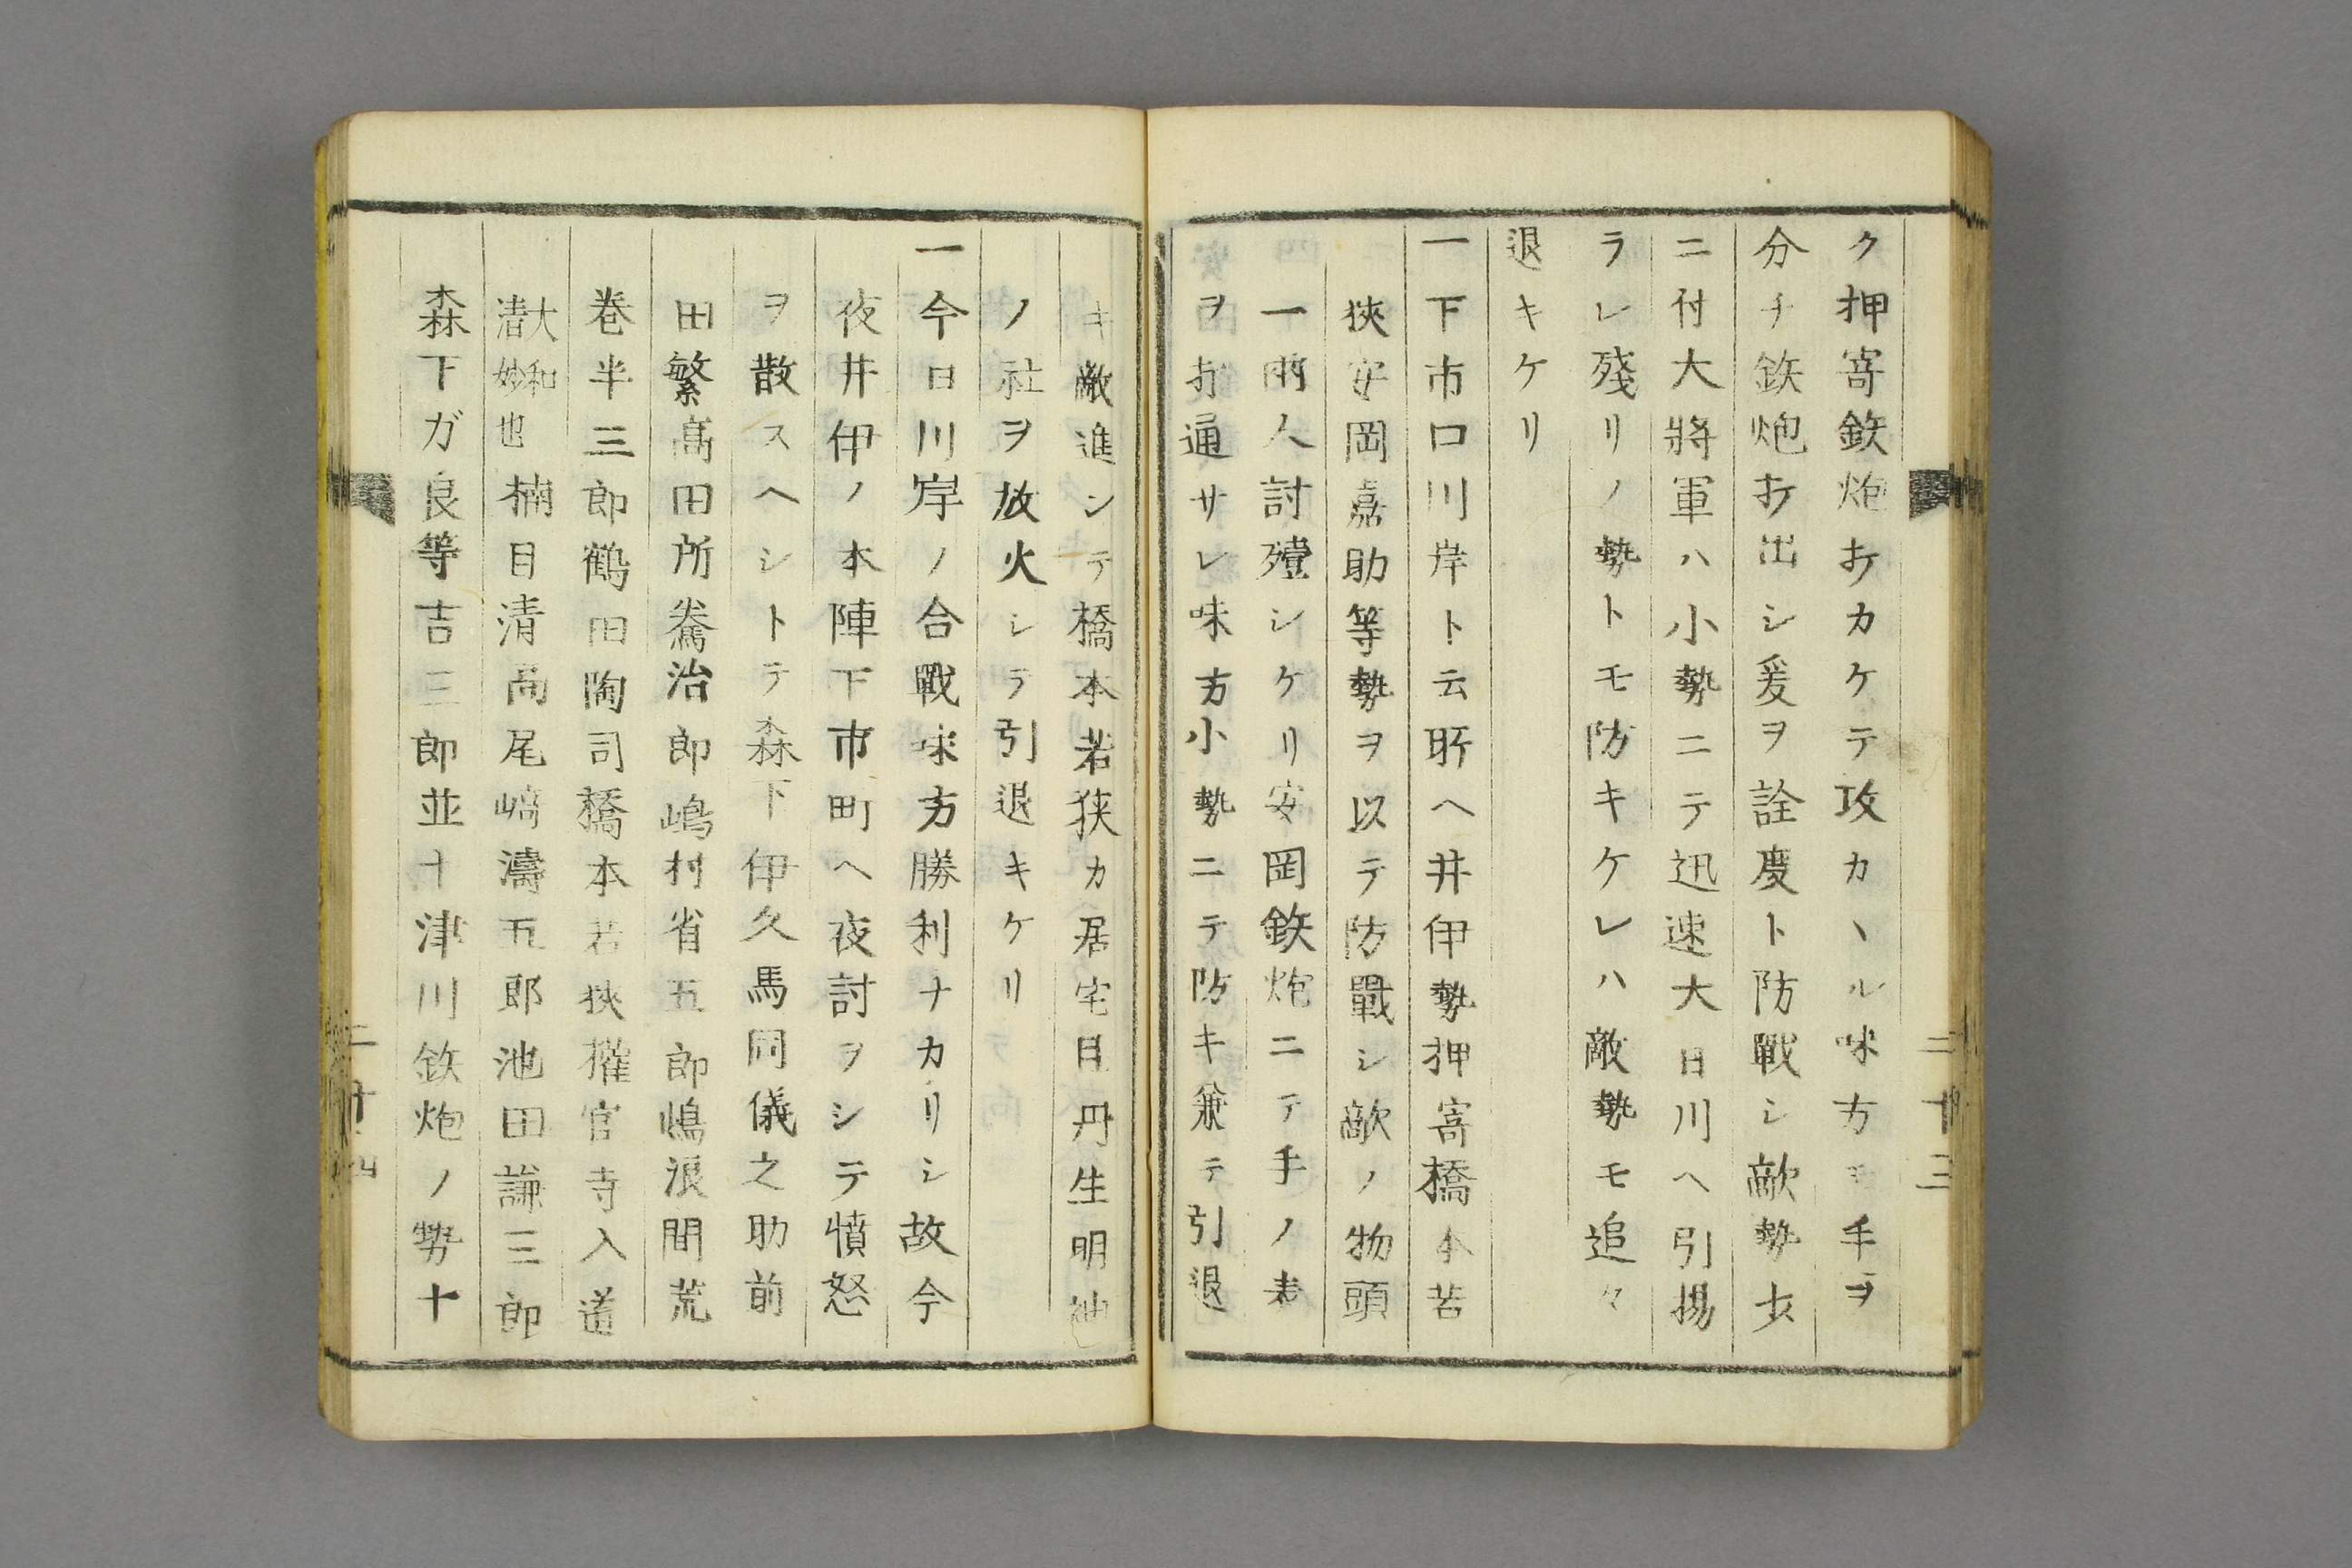 ク押寄鉄炮打カケテ攻カヽル味方モ手ヲ
分チ鉄炮打出シ爰ヲ詮度ト防戰シ敵勢少
ニ付大將軍ハ小勢ニテ迅速大日川ヘ引揚
ラレ殘リノ勢トモ防キケレハ敵勢モ追々
退キケリ
一下市口川岸ト云所ヘ井伊勢押寄橋本若
狹安岡嘉助等勢ヲ以テ防戰シ敵ノ物頭
一兩人討殪シケリ安岡鉄炮ニテ手ノ表
ヲ打通サレ味方小勢ニテ防キ兼テ引退
二十三
キ敵進ンテ橋本若狹カ居宅目丹生明神
ノ社ヲ放火シテ引退キケリ
一今日川岸ノ合戰味方勝利ナカリシ故今
夜井伊ノ本陣下市町ヘ夜討ヲシテ憤怒
ヲ散スヘシトテ森下伊久馬同儀之助前
田繁髙田所騰治郎嶋村省五郎嶋浪間荒
巻半三郎鶴田陶司橋本若狹獾官寺入道
大和
淸妙也
楠目清髙尾﨑濤五郎池田謙三郎
森下ガ良等吉三郎並十津川鉄炮ノ勢十
二十四